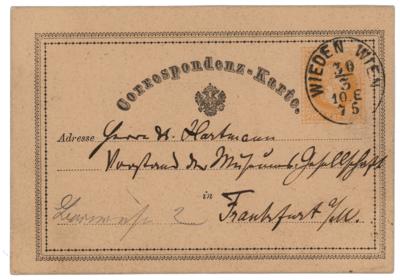 WIEDEN WIEN
30
5
10 F
75
Correspondenz-Karte.
Adresse Herrn Dr. Hartmann
Vorstand der Museums-Gesellschaft
in
Frankfurt a/M.